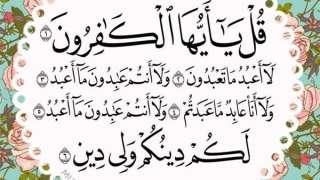 قُلْ يَـٰٓأَيُّهَا ٱلْكَـٰفِرُونَ ١
لَآ أَعْبُدُ مَا تَعْبُدُونَ ٢ وَلَآ أَنتُمْ عَـٰبِدُونَ مَآ أَعْبُدُ ٣
وَلَآ أَنَا۠ عَابِدٌ مَّا عَبَدتُّمْ ٤ وَلَآ أَنتُمْ عَـٰبِدُونَ مَآ أَعْبُدُ ٥
لَكُمْ دِينُكُمْ وَلِىَ دِينِ ٦